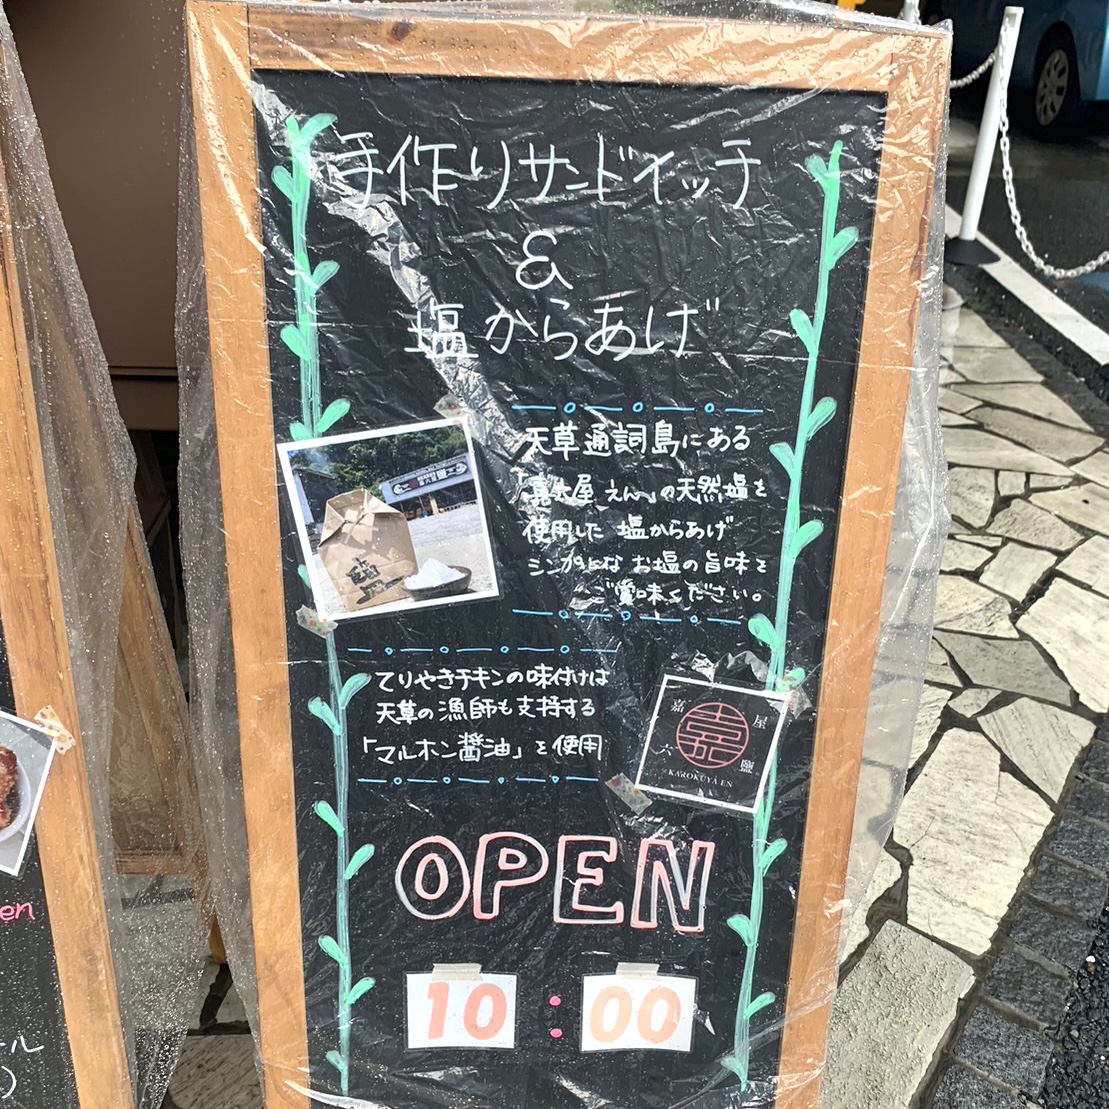 手作りサンドイッチ
&
塩からあげ
天草通詞島にある
「嘉六屋 えん」の天然塩を
使用した 塩からあげ
シンプルな お塩の旨味を
ご賞味ください。
てりやきチキンの味付けは
天草の漁師も支持する
「マルホン醤油」を使用
嘉
屋
六
鹽
KAROKUYA EN
OPEN
10:00
en